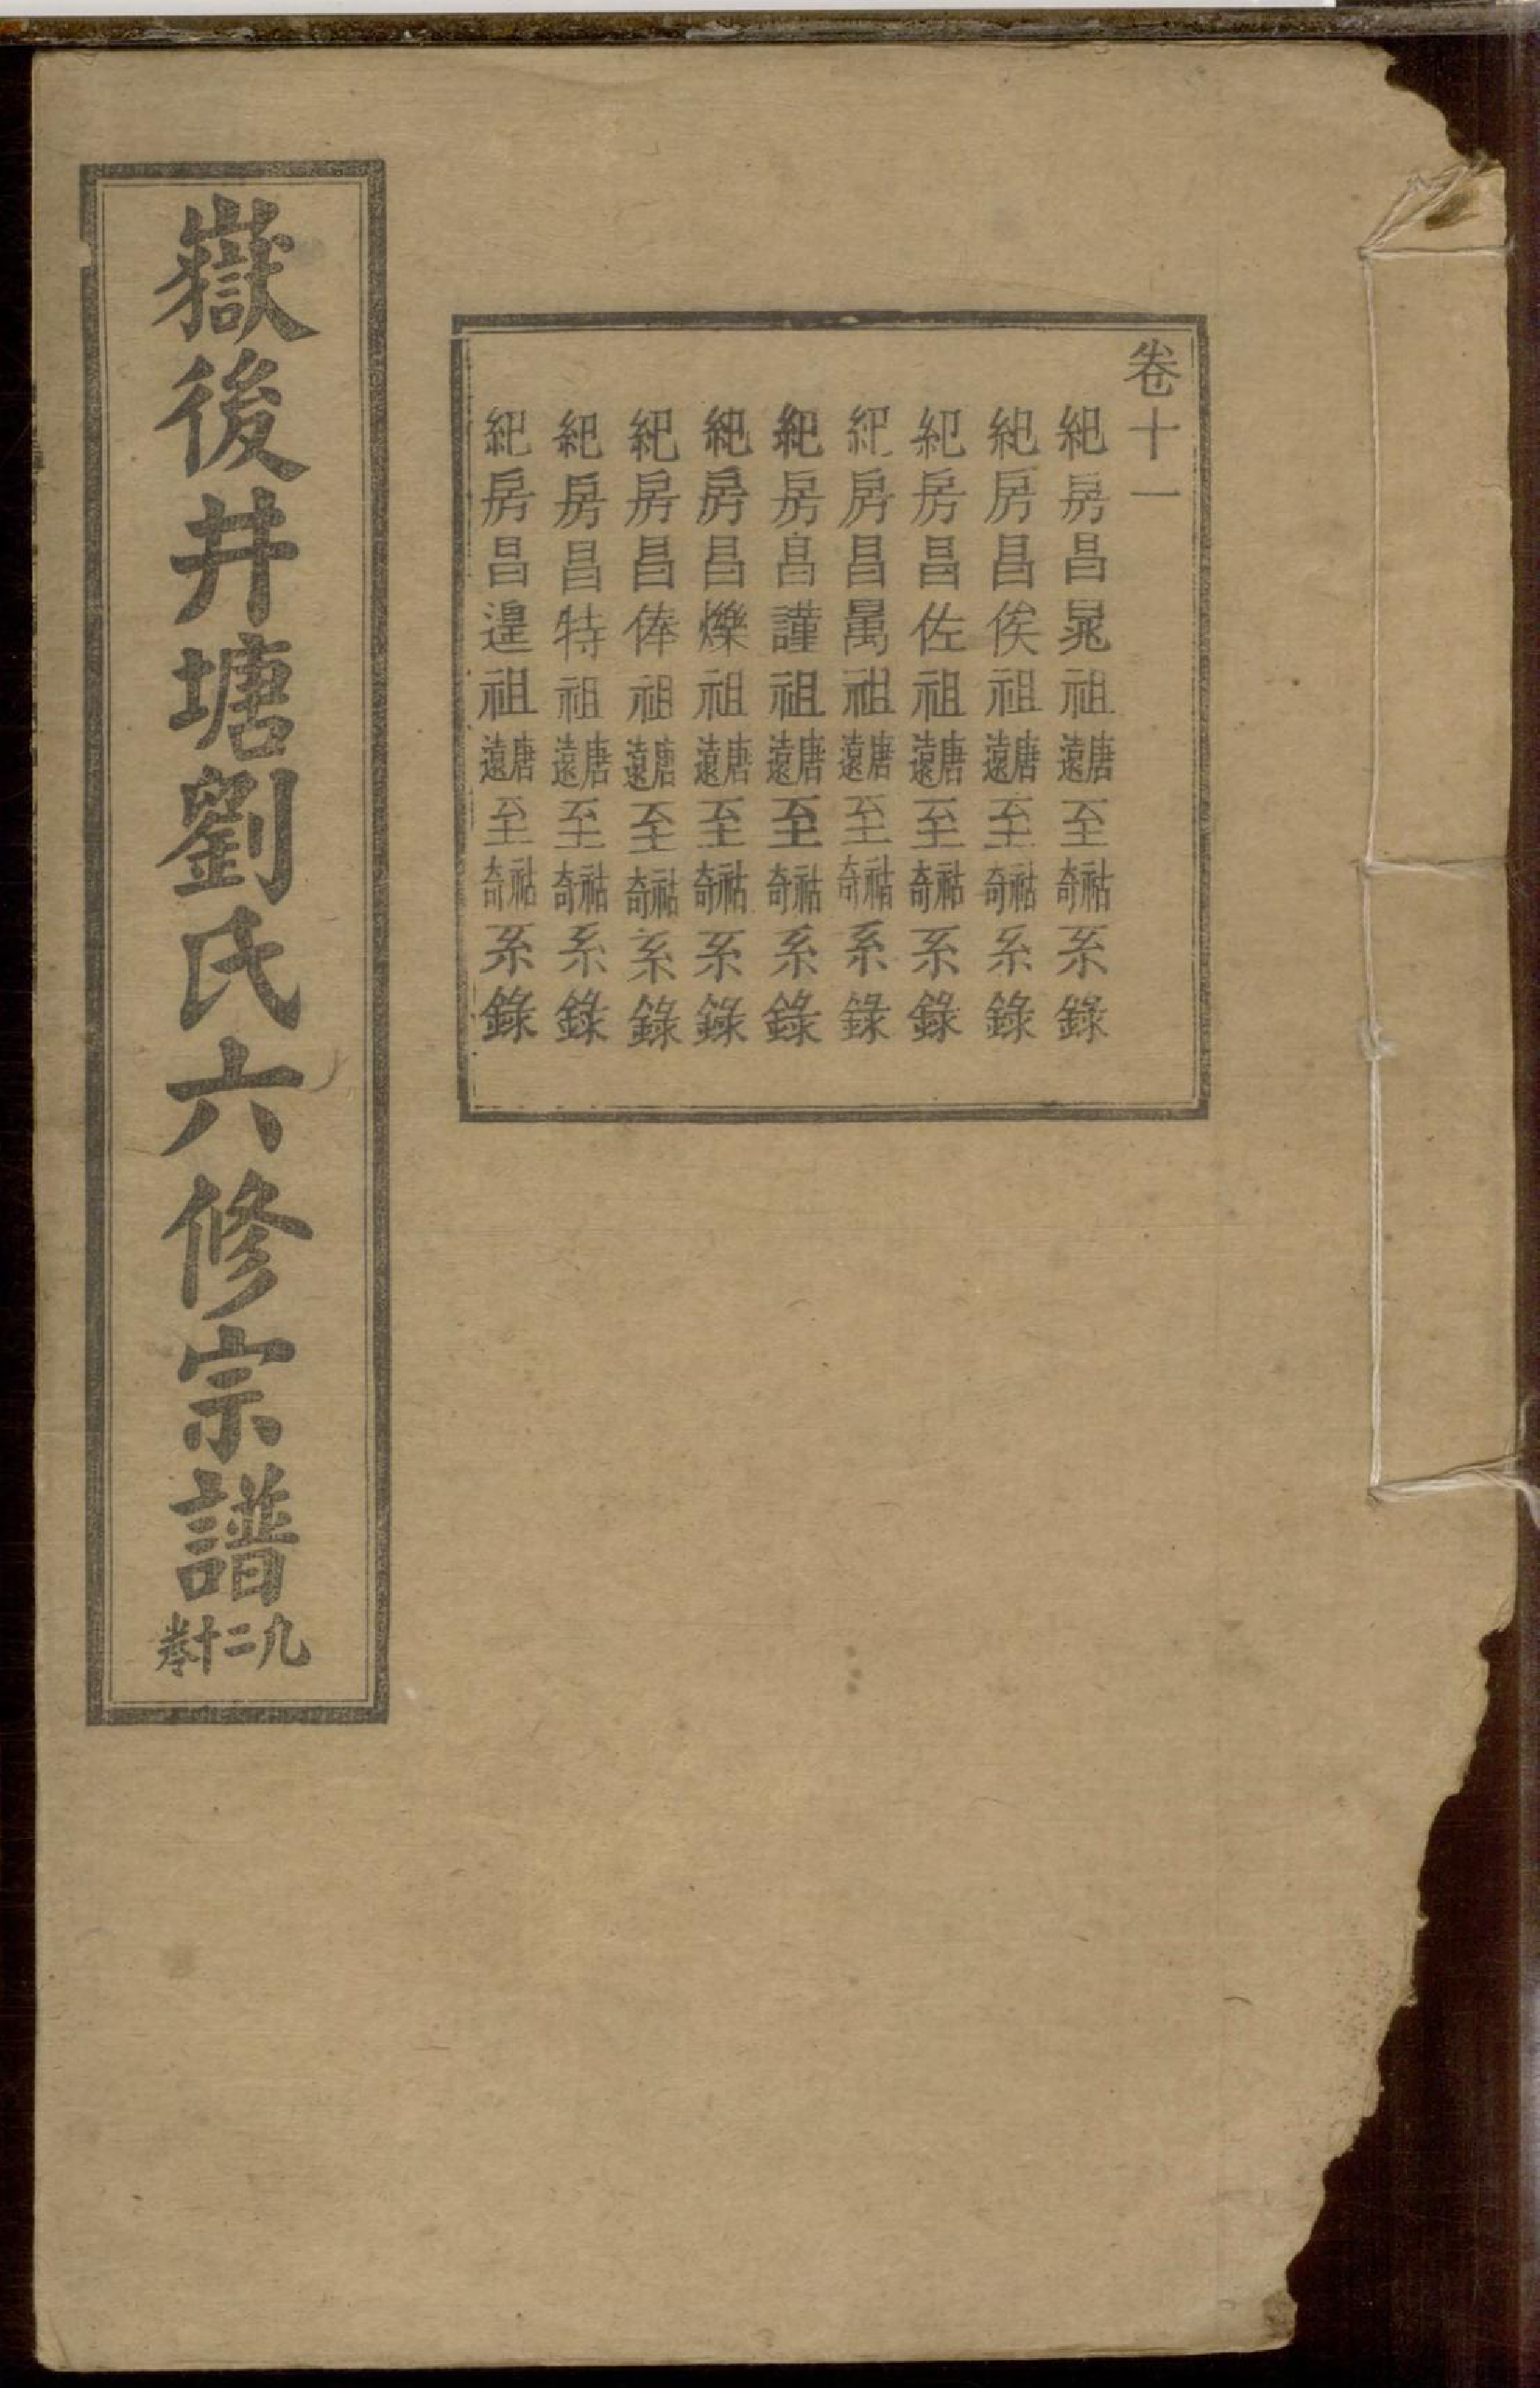 卷十一
紀房昌晁祖唐遠至祜奇系錄
紀房昌俟祖唐遠至祜奇系錄
紀房昌佐祖唐遠至祜奇系錄
紀房昌祖唐遠至祜奇系錄
紀房昌謹祖唐遠至祜奇系錄
紀房昌爍祖唐遠至祜奇系錄
紀房昌俸祖唐遠至祜奇系錄
紀房昌特祖唐遠至祜奇系錄
紀房昌遑祖唐遠至祜奇系錄
嶽後井塘劉氏六修宗譜
凡二十卷